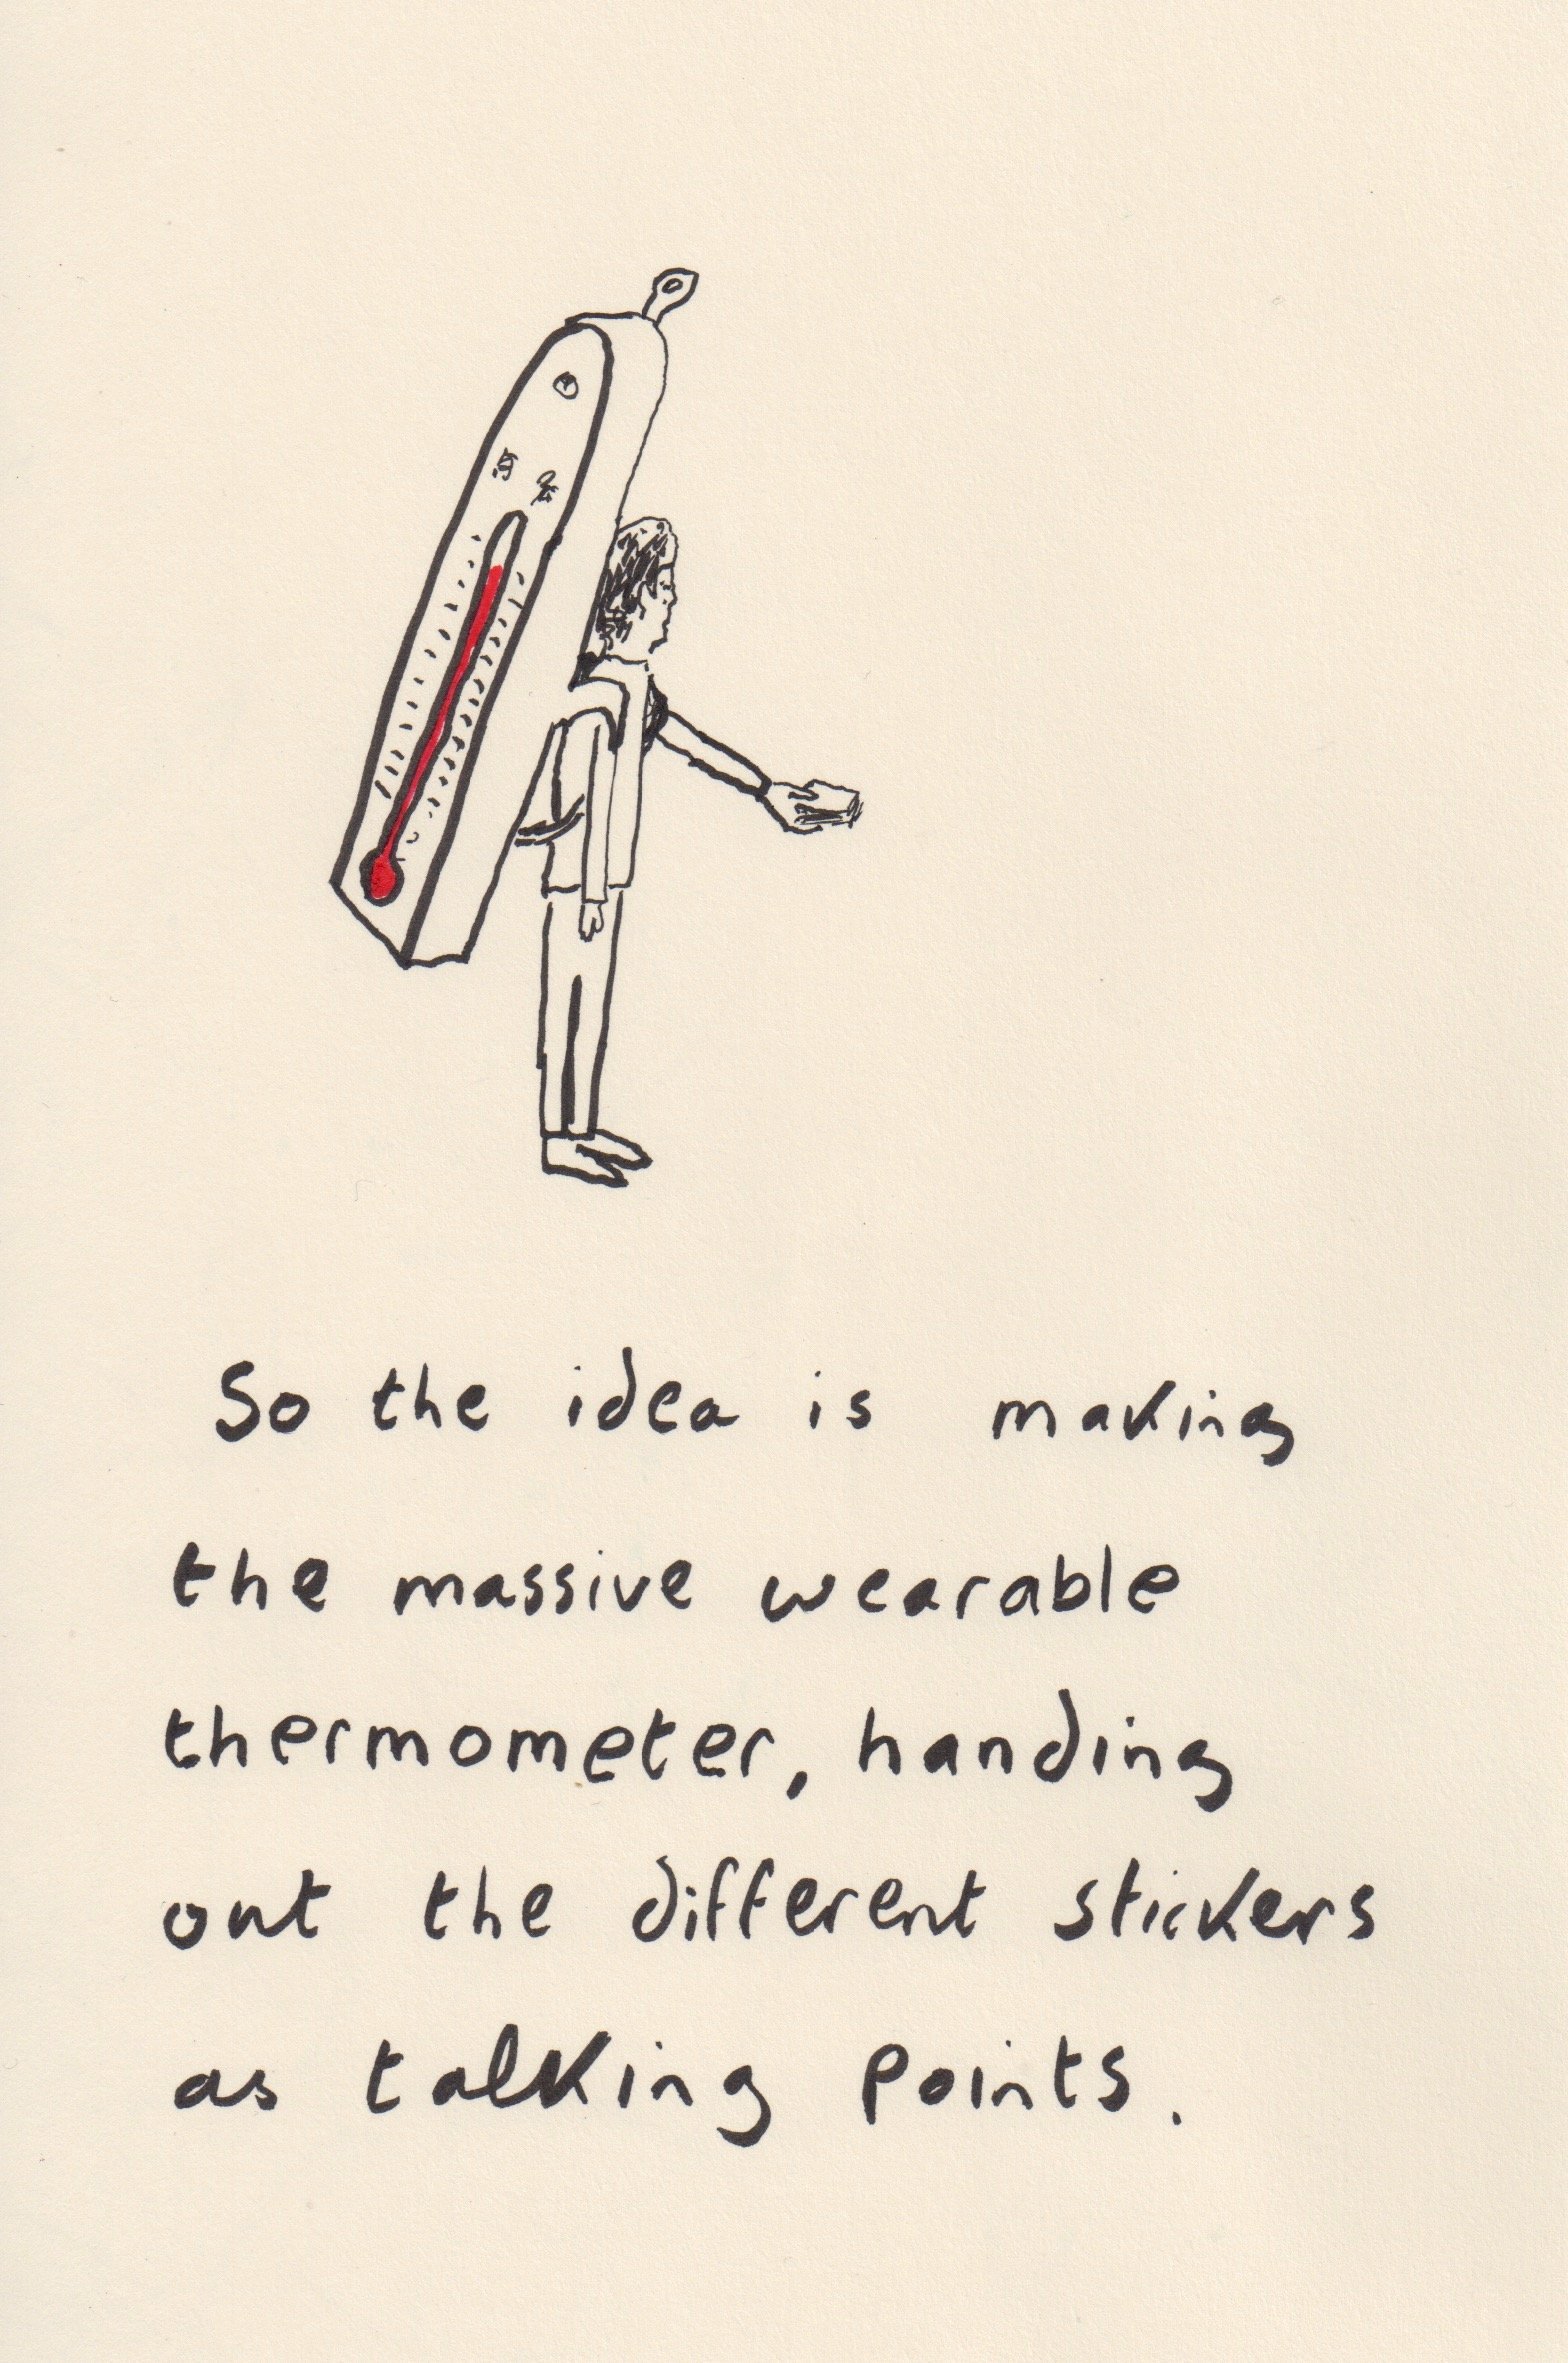 So the idea is making
the massive wearable
thermometer, handing
out the different stickers
as talking points.